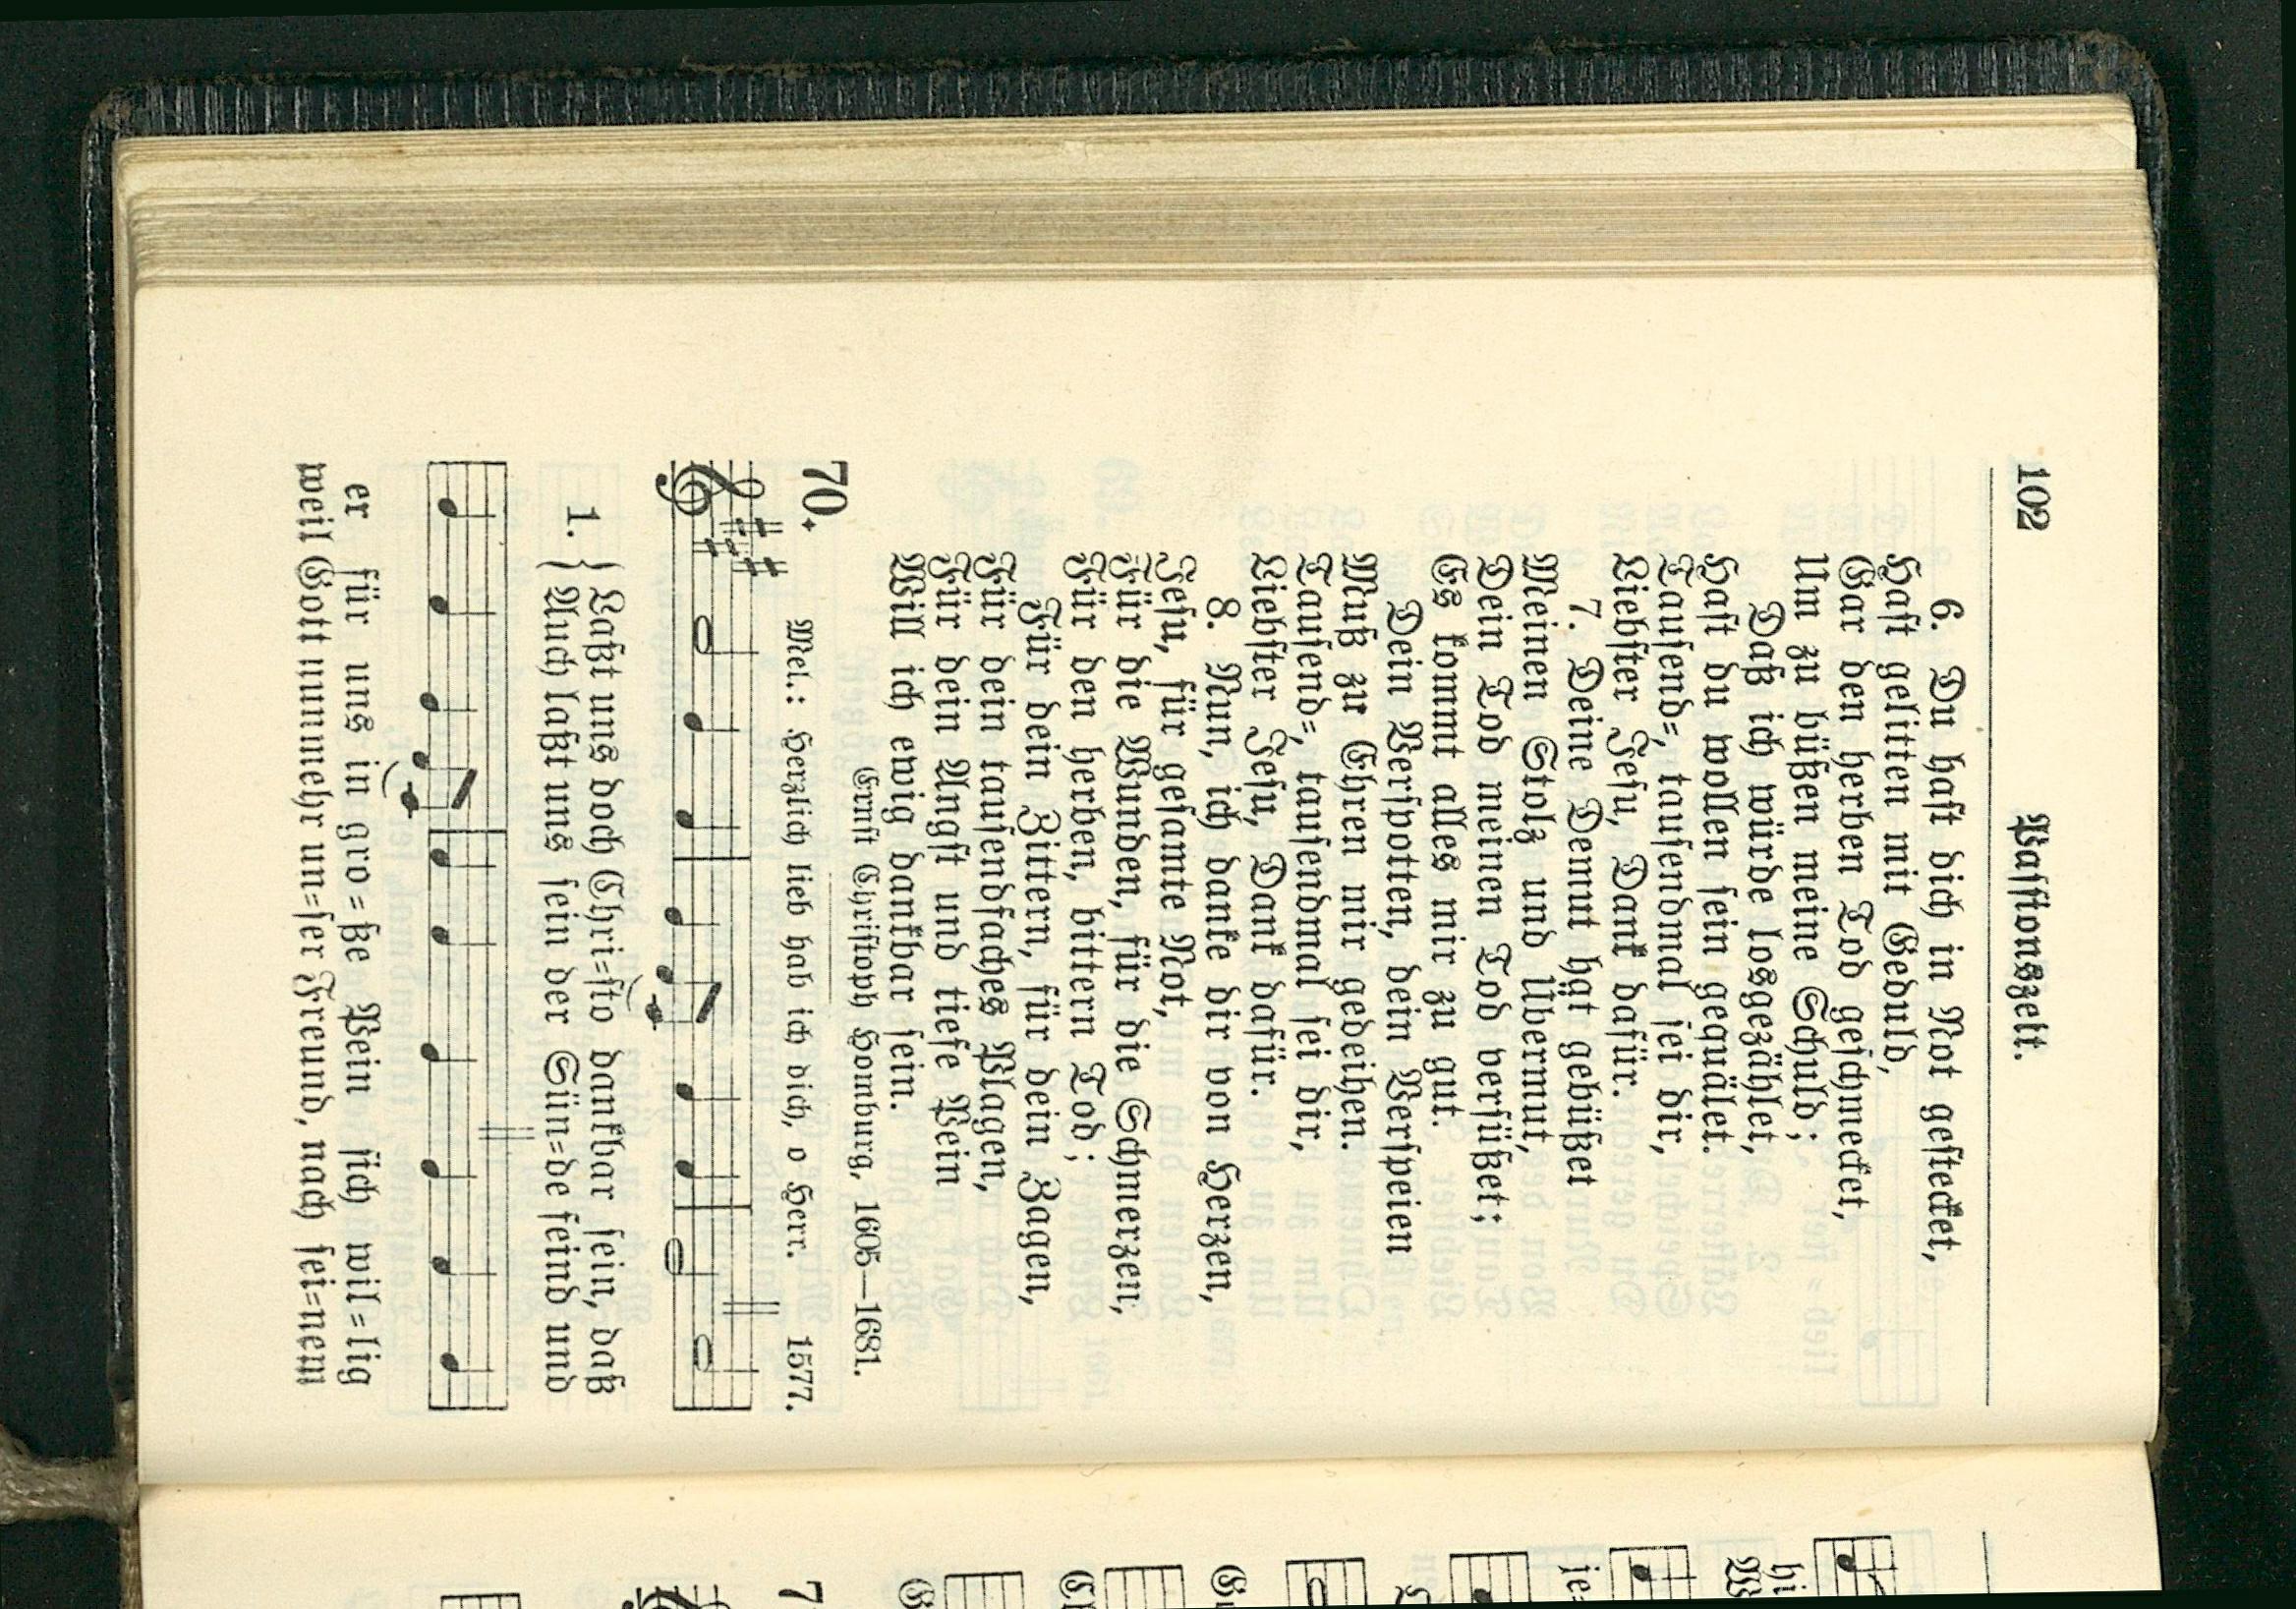 102 Passionszeit.
6. Du hast dich in Not gestecket,
Hast gelitten mit Geduld,
Gar den herben Tod geschmecket,
Um zu büßen meine Schuld;
Daß ich würde losgezählet,
Hast du wollen sein gequälet.
Tausend=, tausendmal sei dir,
Liebster Jesu, Dank dafür.
7. Deine Demut hat gebüßet
Meinen Stolz und Übermut,
Dein Tod meinen Tod versüßet;
Es kommt alles mir zu gut.
Dein Verspotten, dein Verspeien
Muß zu Ehren mir gedeihen.
Tausend=, tausendmal sei dir,
Liebster Jesu, Dank dafür.
8. Nun, ich danke dir von Herzen,
Jesu, für gesamte Not,
Für die Wunden, für die Schmerzen,
Für den herben, bittern Tod;
Für dein Zittern, für dein Zagen,
Für dein tausendfaches Plagen,
Für dein Angst und tiefe Pein
Will ich ewig dankbar sein.
Ernst Christoph Homburg, 1605—1681.
70. Mel.: Herzlich lieb hab ich dich, o Herr. 1577.
1. { Laßt uns doch Chri=sto dankbar sein, daß
Auch laßt uns sein der Sün=de feind und
er für uns in gro=ße Pein sich wil=lig
weil Gott nunmehr un=ser Freund, nach sei=nem
hi
W
je=
7